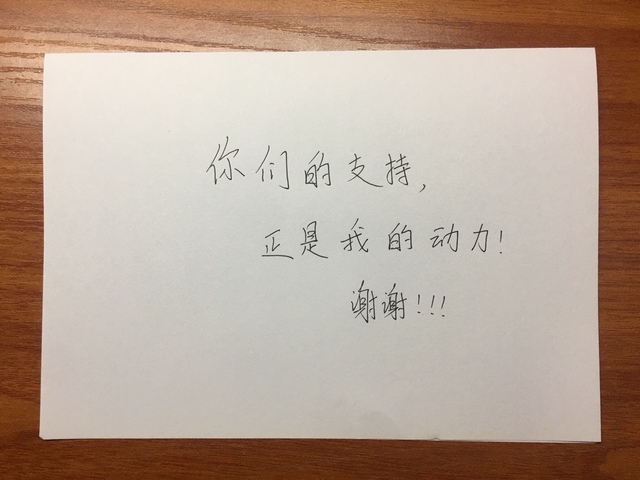 你们的支持,
正是我的动力!
谢谢!!!